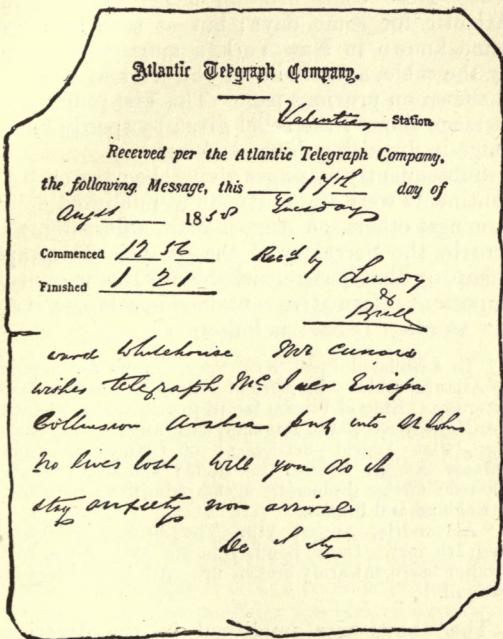 Atlantic Telegraph Company.
Valentia Station.
Received per the Atlantic Telegraph Company,
the following Message, this 17th day of
August 1858 Tuesday
Commenced 12 56 Recd by
Finished 1 21
&
Bull
ward Whitehouse Mr Cunard
wishes telegraph Mc Iver Europa
Collision Arabia put into St Johns
No lives lost will you do it
stay anxiety non arrival
De Sty